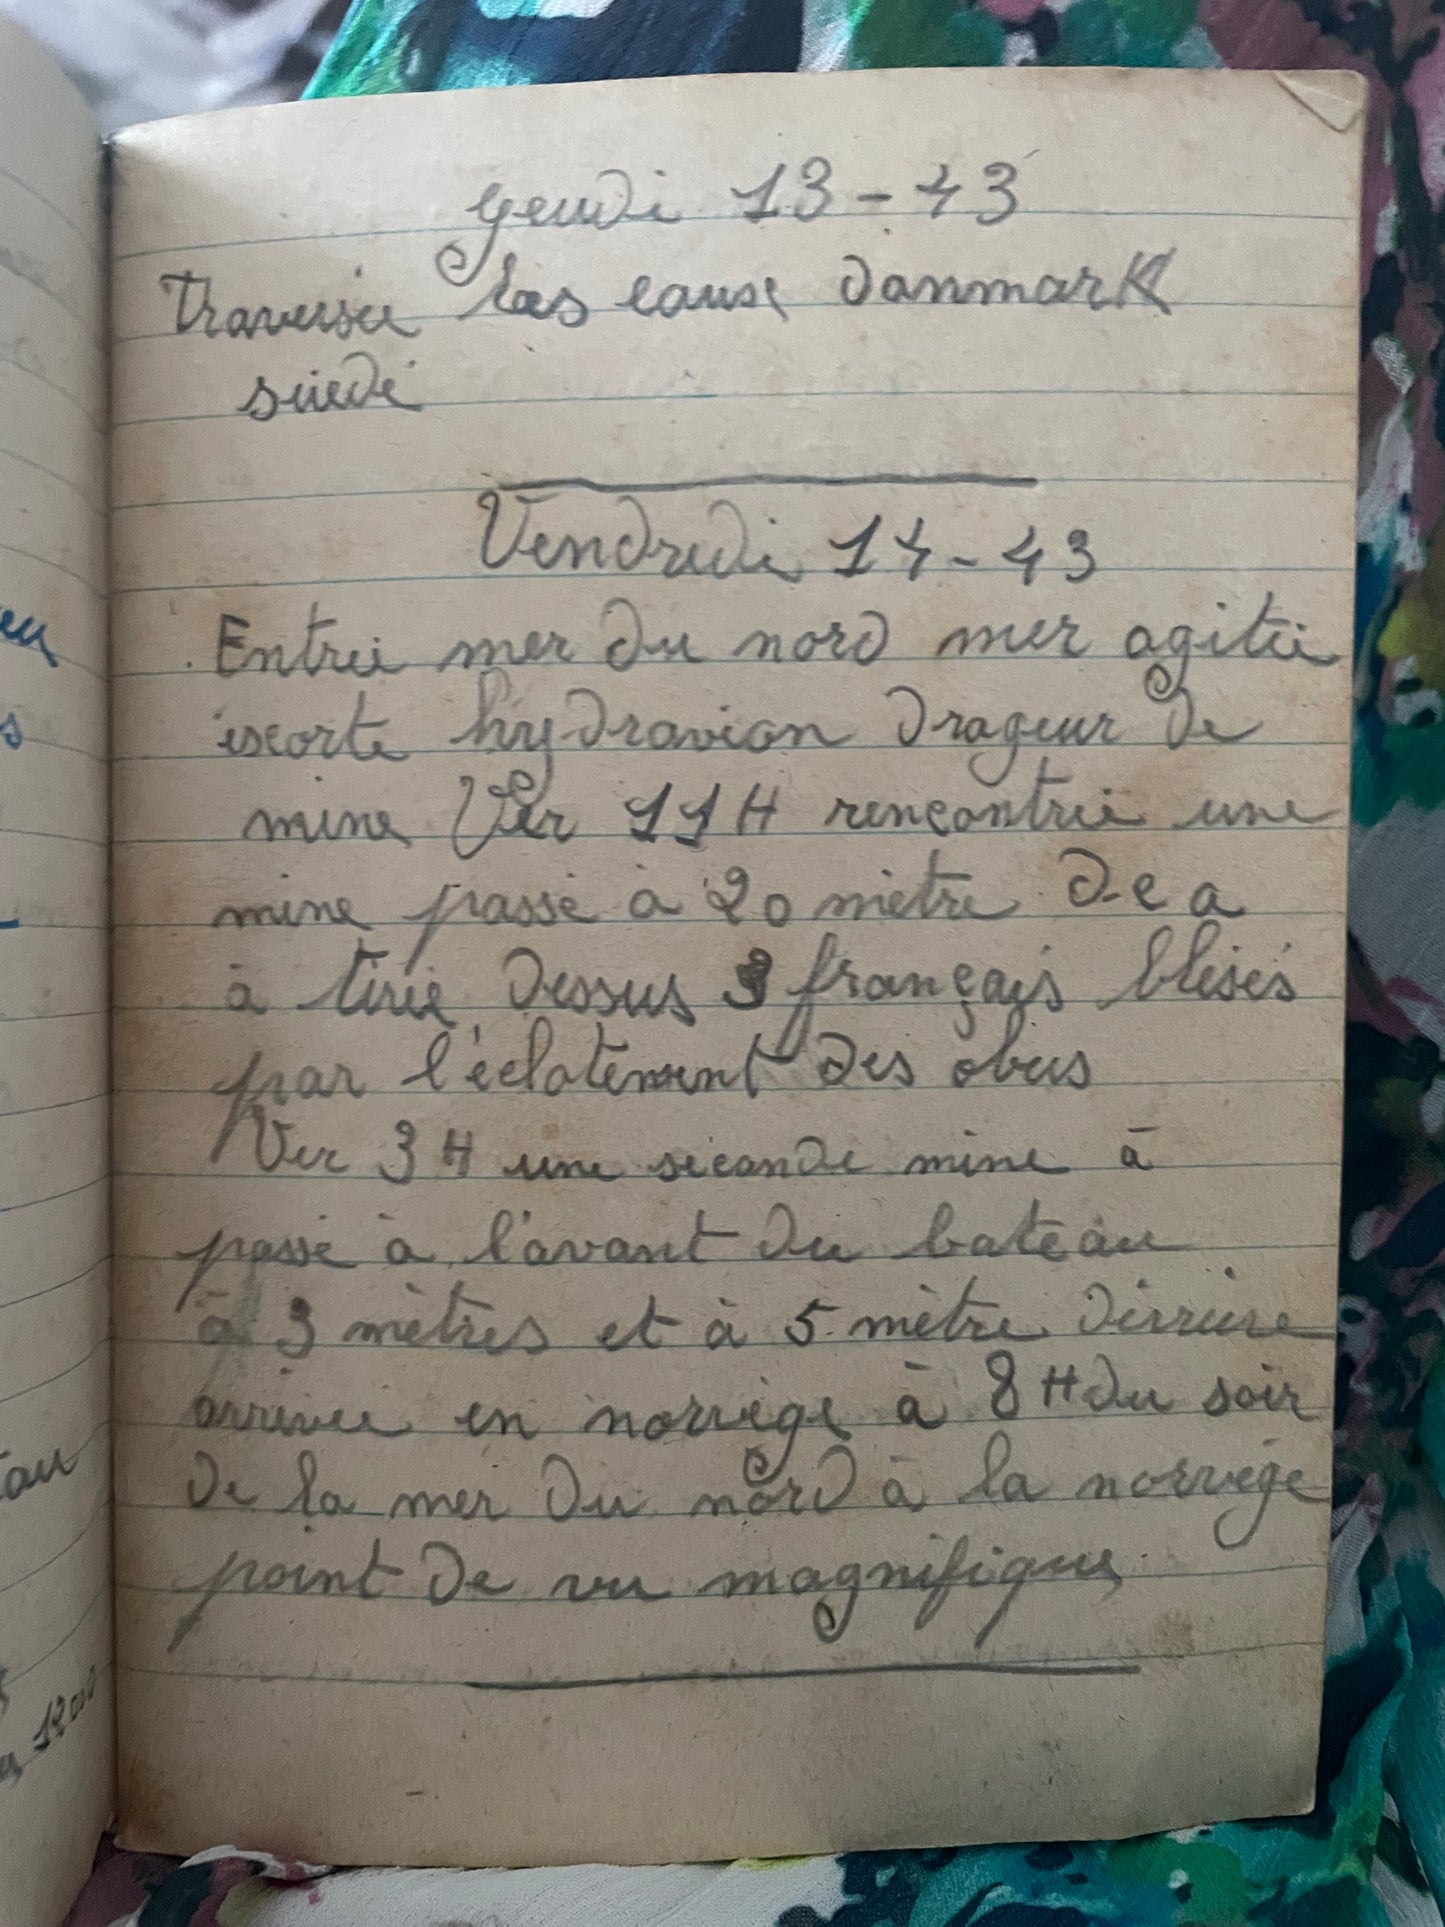 Jeudi 13-43
Traversée les eause Danmark
suède
Vendredi 14-43
Entrée mer du nord mer agitée
escorte hydravion drageur de
mine Ver 11H rencontrée une
mine passé à 20 mètre de a
à tirée dessus 3 français blésés
par l'éclatement des obus
Ver 3H une séconde mine à
passé à l'avant du bateau
à 3 mètres et à 5 mètre dérrière
arrivée en norvège à 8H du soir
de la mer du nord à la norvège
point de vu magnifique
eu
s
eau
1200